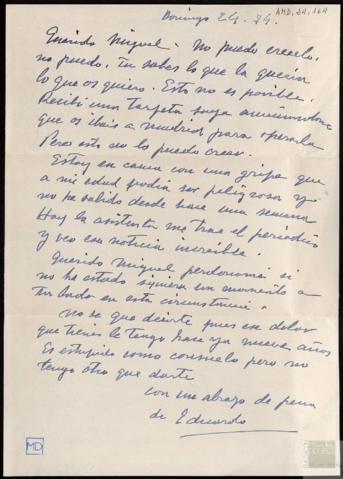 AMD, 24, 164
Domingo 24. 74.
Querido Miguel - No puedo creerlo,
no puedo. Tu sabes lo que la queria
lo que os quiero. Esto no es posible.
Recibi una tarjeta suya anunciandome
que os ibais a Madrid para operarla
Pero esto no lo puedo creer.
Estoy en cama con una gripe que
a mi edad podia ser peligrosa y
no he salido desde hace una semana
Hoy la asistenta me trae el periodico
y veo esa noticia increible.
Querido Miguel perdoname si
no he estado siquiera un momento a
tu lado en esta circunstancia.
No se que decirte pues ese dolor
que tienes lo tengo hace ya nueve años
Es estupido como consuelo pero no
tengo otro que darte
con un abrazo de pena
de Eduardo
MD